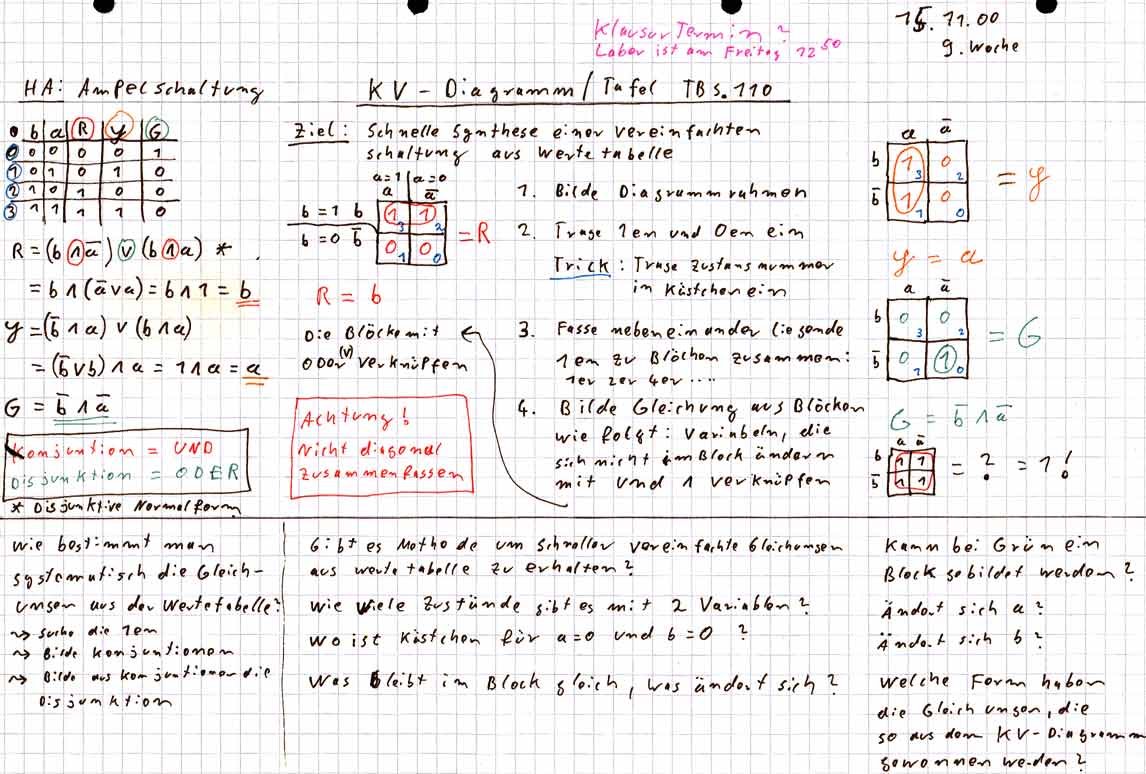 Klausur Termin?
Labor ist am Freitag 12 50
15.11.00
9. Woche
HA: Ampelschaltung
KV - Diagramm / Tafel TB S. 110
b a R Y G
0 0 0 0 0 1
1 0 1 0 1 0
2 1 0 1 0 0
3 1 1 1 1 0
R = (b ∧ a̅) ∨ (b ∧ a) *
= b ∧ (a̅ ∨ a) = b ∧ 1 = b
Y = (b̅ ∧ a) ∨ (b ∧ a)
= (b̅ ∨ b) ∧ a = 1 ∧ a = a
G = b̅ ∧ a̅
Konjuntion = UND
Disjunktion = ODER
* Disjunktive Normalform
Ziel: Schnelle Synthese einer vereinfachten
schaltung aus Wertetabelle
a=1 a=0
a a̅
b=1 b 1 3 1 2
b=0 b̅ 0 1 0 0
= R
R = b
Die Blöcke mit
ODER (V) verknüpfen
Achtung!
Nicht diagonal
zusammenfassen
1. Bilde Diagrammrahmen
2. Trage 1en und 0en ein
Trick: Trage Zustansnummer
in Kästchen ein
3. Fasse nebeneinander liegende
1en zu Blöcken zusammen:
1er 2er 4er ....
4. Bilde Gleichung aus Blöcken
wie folgt: Variabeln, die
sich nicht im Block ändern
mit und ∧ verknüpfen
a a̅
b 1 3 0 2
b̅ 1 1 0 0
= Y
Y = a
a a̅
b 0 3 0 2
b̅ 0 1 1 0
= G
G = b̅ ∧ a̅
a a̅
b 1 1
b̅ 1 1
= ? = 1!
Wie bestimmt man
systematisch die Gleich-
ungen aus der Wertetabelle?
~> Suche die 1en
~> Bilde Konjuntionen
~> Bilde aus Konjuntionen die
Disjunktion
Gibt es Methode um schneller vereinfachte Gleichungen
aus wertetabelle zu erhalten?
Wie viele Zustände gibt es mit 2 Variablen?
Wo ist Kästchen für a=0 und b=0 ?
Was bleibt im Block gleich, was ändert sich?
Kann bei Grün ein
Block gebildet werden?
Ändert sich a?
Ändert sich b?
Welche Form haben
die Gleichungen, die
so aus dem KV-Diagramm
gewonnen werden?